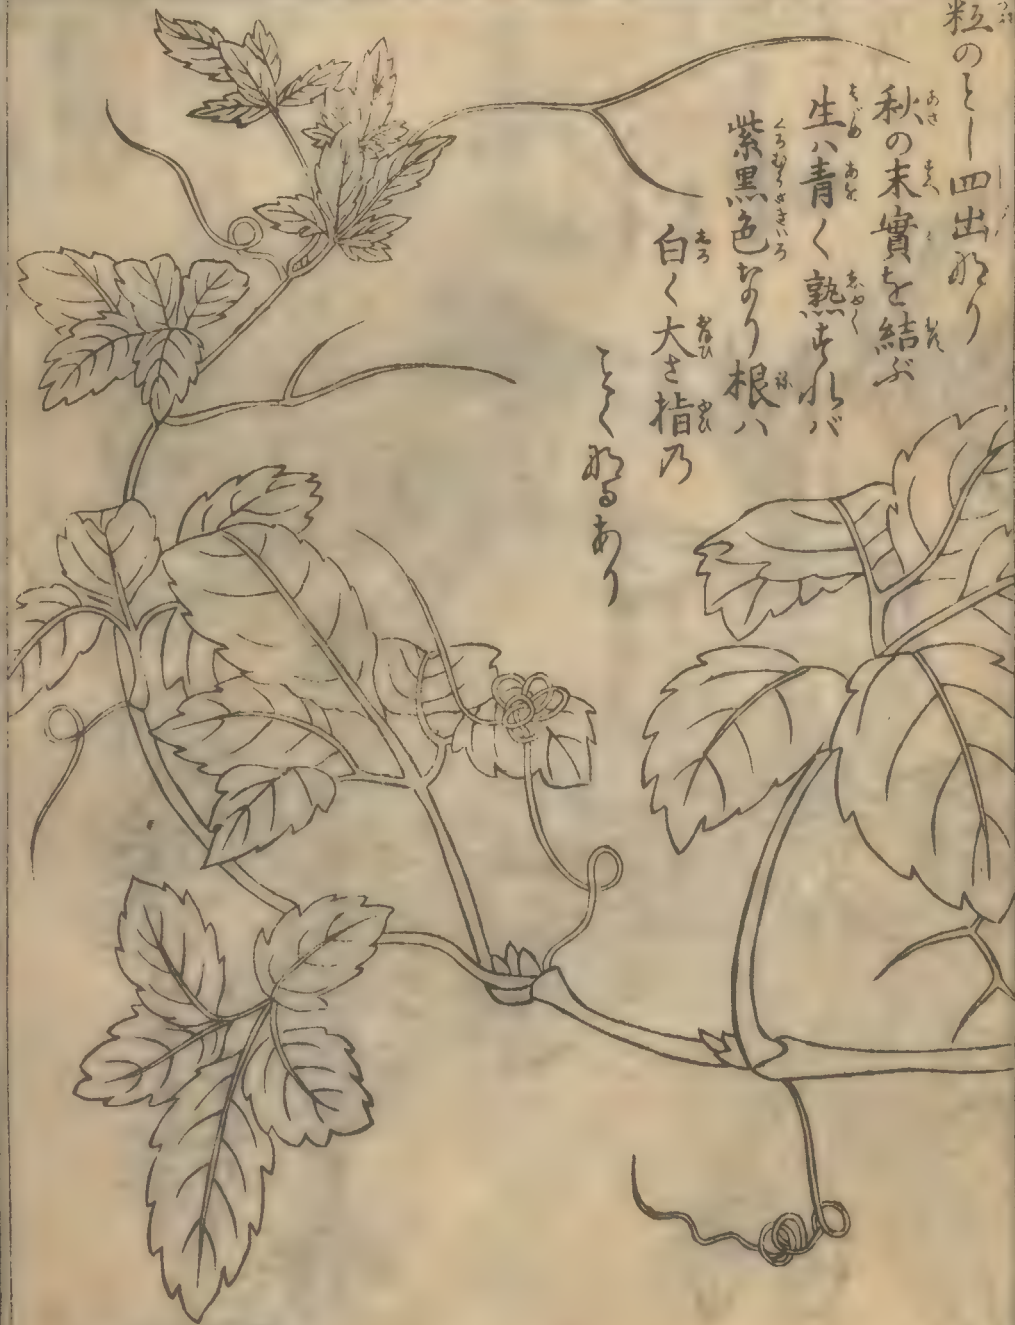 粒のごとし四出なり
秋の末實を結ぶ
生ハ青く熟すれバ
紫黒色なり根ハ
白く大さ指乃
ごとくなるあり